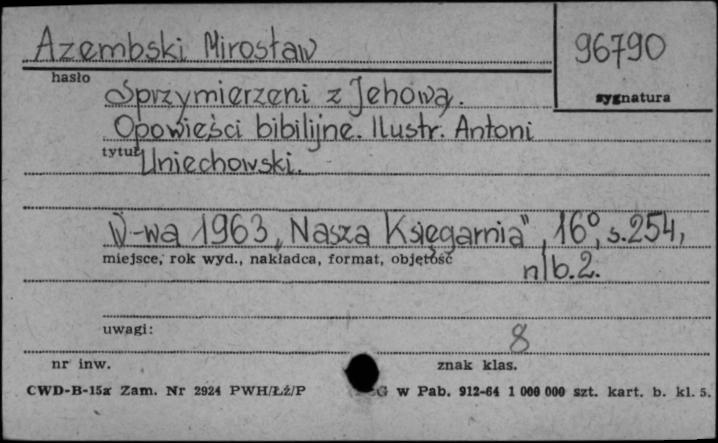 Azembski Mirosław
96790
hasło
sygnatura
Sprzymierzeni z Jehową.
Opowieści bibilijne. Ilustr. Antoni
tytuł
Uniechowski.
W-wa 1963 „Nasza Księgarnia", 16°, s.254,
miejsce, rok wyd., nakładca, format, objętość
nlb.2.
uwagi:
8
nr inw.
znak klas.
CWD-B-15a Zam. Nr 2924 PWH/Łź/P
G w Pab. 912-64 1 000 000 szt. kart. b. kl. 5.